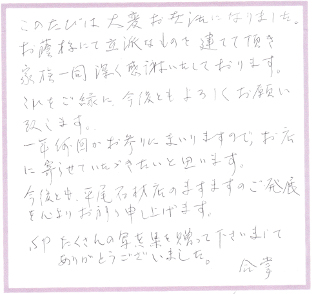 このたびは大変お世話になりました。
お蔭様にて立派なものを建てて頂き
家族一同深く感謝いたしております。
これをご縁に、今後ともよろしくお願い
致します。
一年納骨がお参りにまいりますので、お店
に寄らせていただきたいと思います。
今後とも、平尾石材店のますますのご発展
を心よりお祈り申し上げます。
たくさんの写真集を贈って下さいまして
ありがとうございました。
合掌